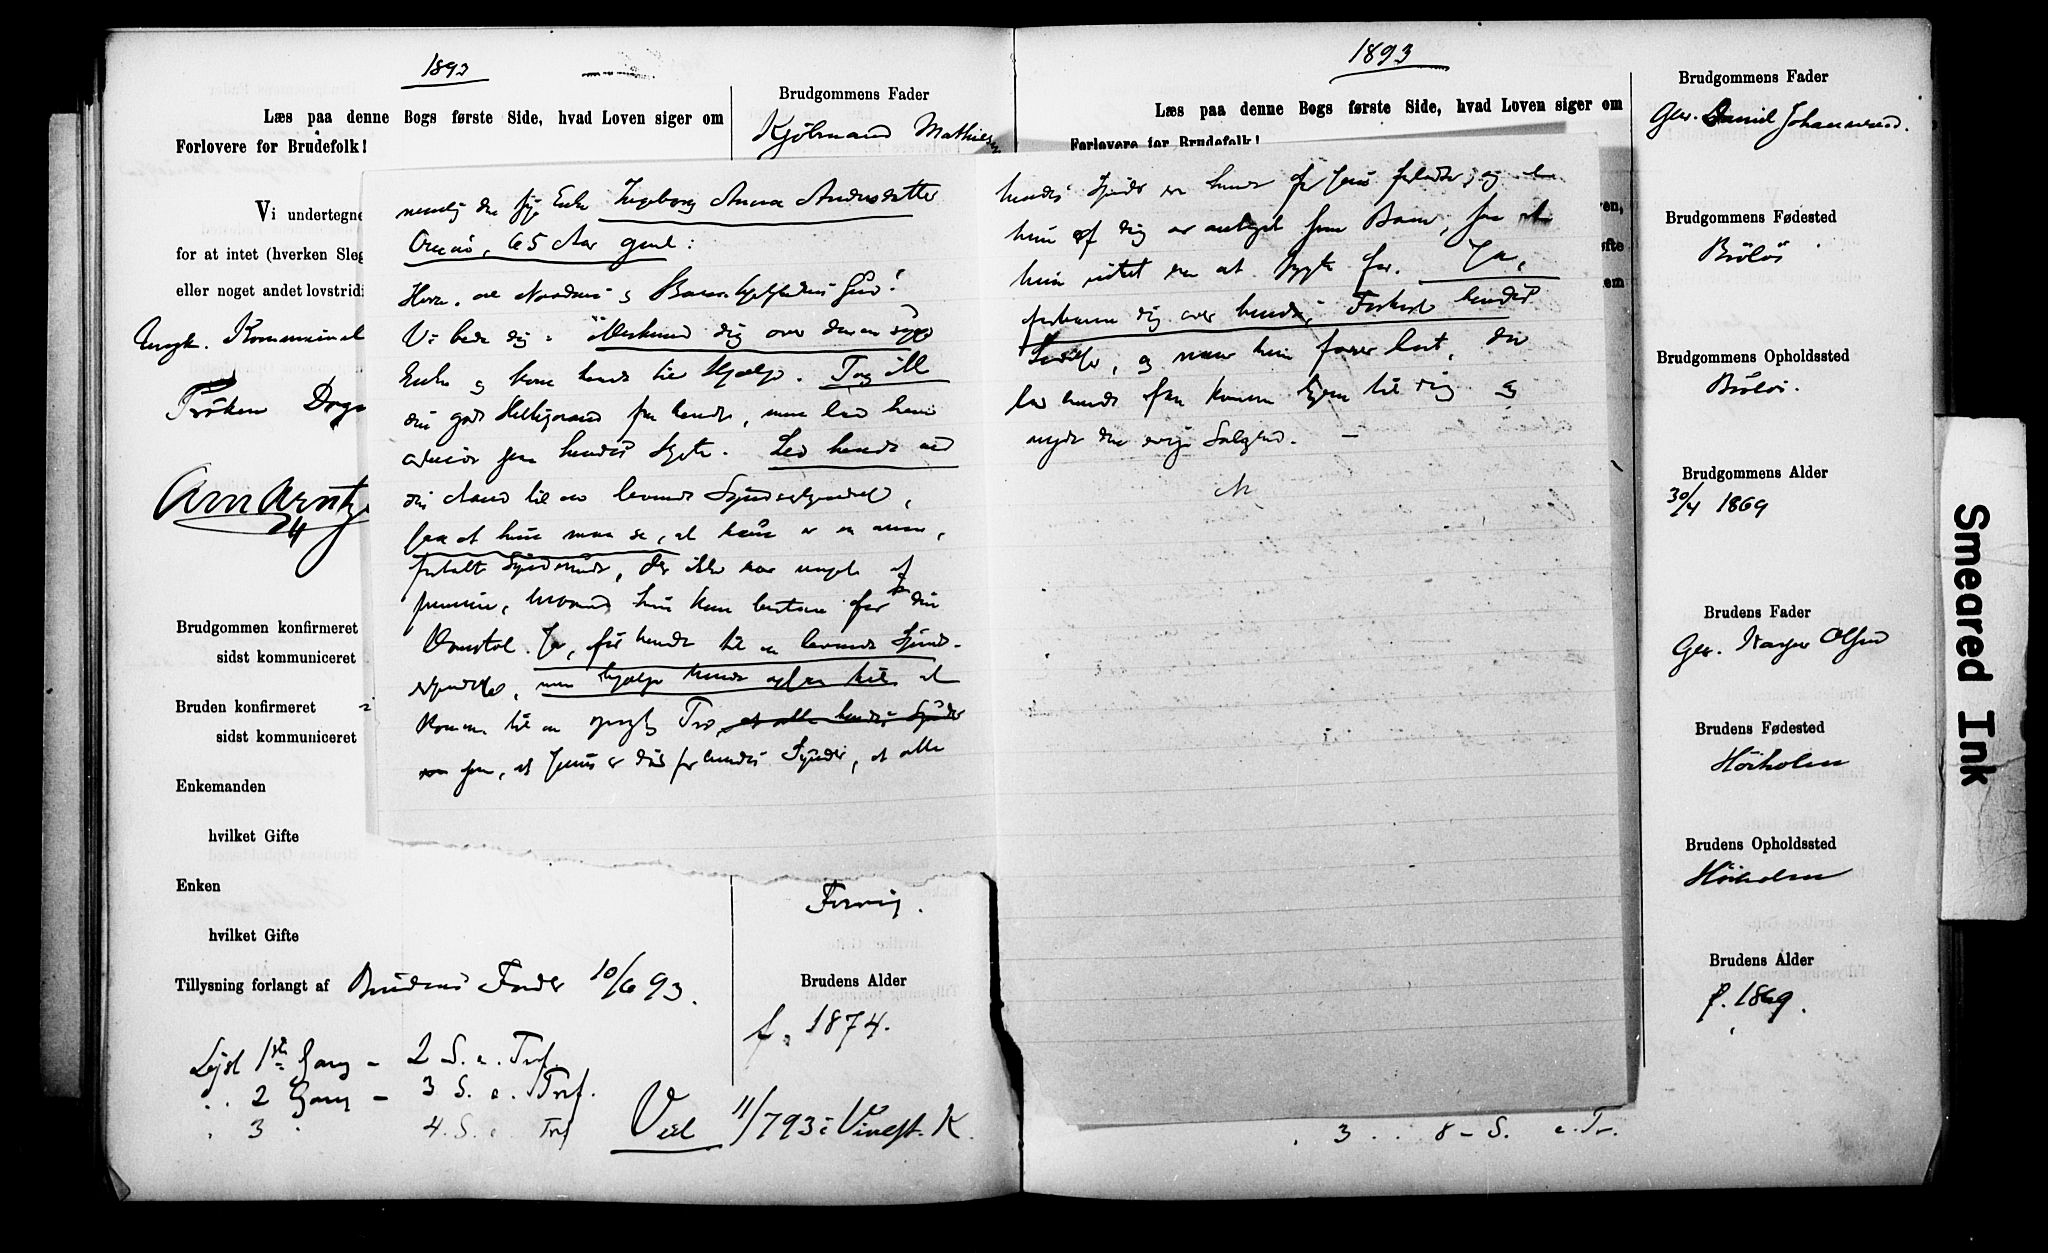 1893
Læs paa denne Bogs første Side, hvad Loven siger om
Forlovere for Brudefolk!
Vi undertegne
for at intet (hverken Sleg
eller noget andet lovstridi
Ungk. Kommunal
Frøken
Brudgommen konfirmeret
sidst kommuniceret
Bruden konfirmeret
sidst kommuniceret
Enkemanden
hvilket Gifte
Enken
hvilket Gifte
Tillysning forlangt af Brudens Fader 10/6 93.
Lyst 1ste Gang - 2 S. e. Tref.
" 2 Gang - 3 S. e. Tref.
" 3 " 4. S. e. Tref
Viet 11/7 93 i Vinest. K.
Brudgommens Fader
Kjøbmand Mathiesen
Brudens Alder
f. 1874.
nemlig den syge Enke Ingeborg Anna Andersdatter
65 Aar gml:
Herre, al Naades og Barmhjertigheds Gud!
Vi bede dig: Miskund dig over denne syge
Enke og kom hende til Hjælp. Tag ikke
din gode Helligaand fra hende, men lad ham
arbeide paa hendes Hjerte. Led hende ved
din Aand til en levende Syndserkjendelse,
saa at hun maa se, at hun er en arm,
fortabt Synderinde, der ikke har noget af
hvormed hun kan bestaa for din
Domstol. Ja, før hende til en levende Synds-
erkjendelse, men hjælp hende ogsaa til at
komme til en Tro, at alle hendes Synder
paa, at Jesus er død for hendes Synder, at alle
hendes Synder er hende for Jesu forladte, og at
hun af dig er antaget som Barn, saa at
hun intet har at frygte for. Ja,
forbarm dig over hende, Forkort hendes
Lidelse, og naar hun farer bort, da
lad hende faa komme hjem til dig og
nyde den evige Salighed. —
1893
Læs paa denne Bogs første Side, hvad Loven siger om
Forlovere for Brudefolk!
en,
øfte
em
" 3 " 8 - S. e. Tr.
Brudgommens Fader
Gbr. Daniel Johannesen.
Brudgommens Fødested
Bröløs
Brudgommens Opholdssted
Bröløs.
Brudgommens Alder
30/4 1869
Brudens Fader
Gbr. Kasper Olsen
Brudens Fødested
Höiholmen
Brudens Opholdssted
Höiholmen
Brudens Alder
f. 1869.
Smeared Ink